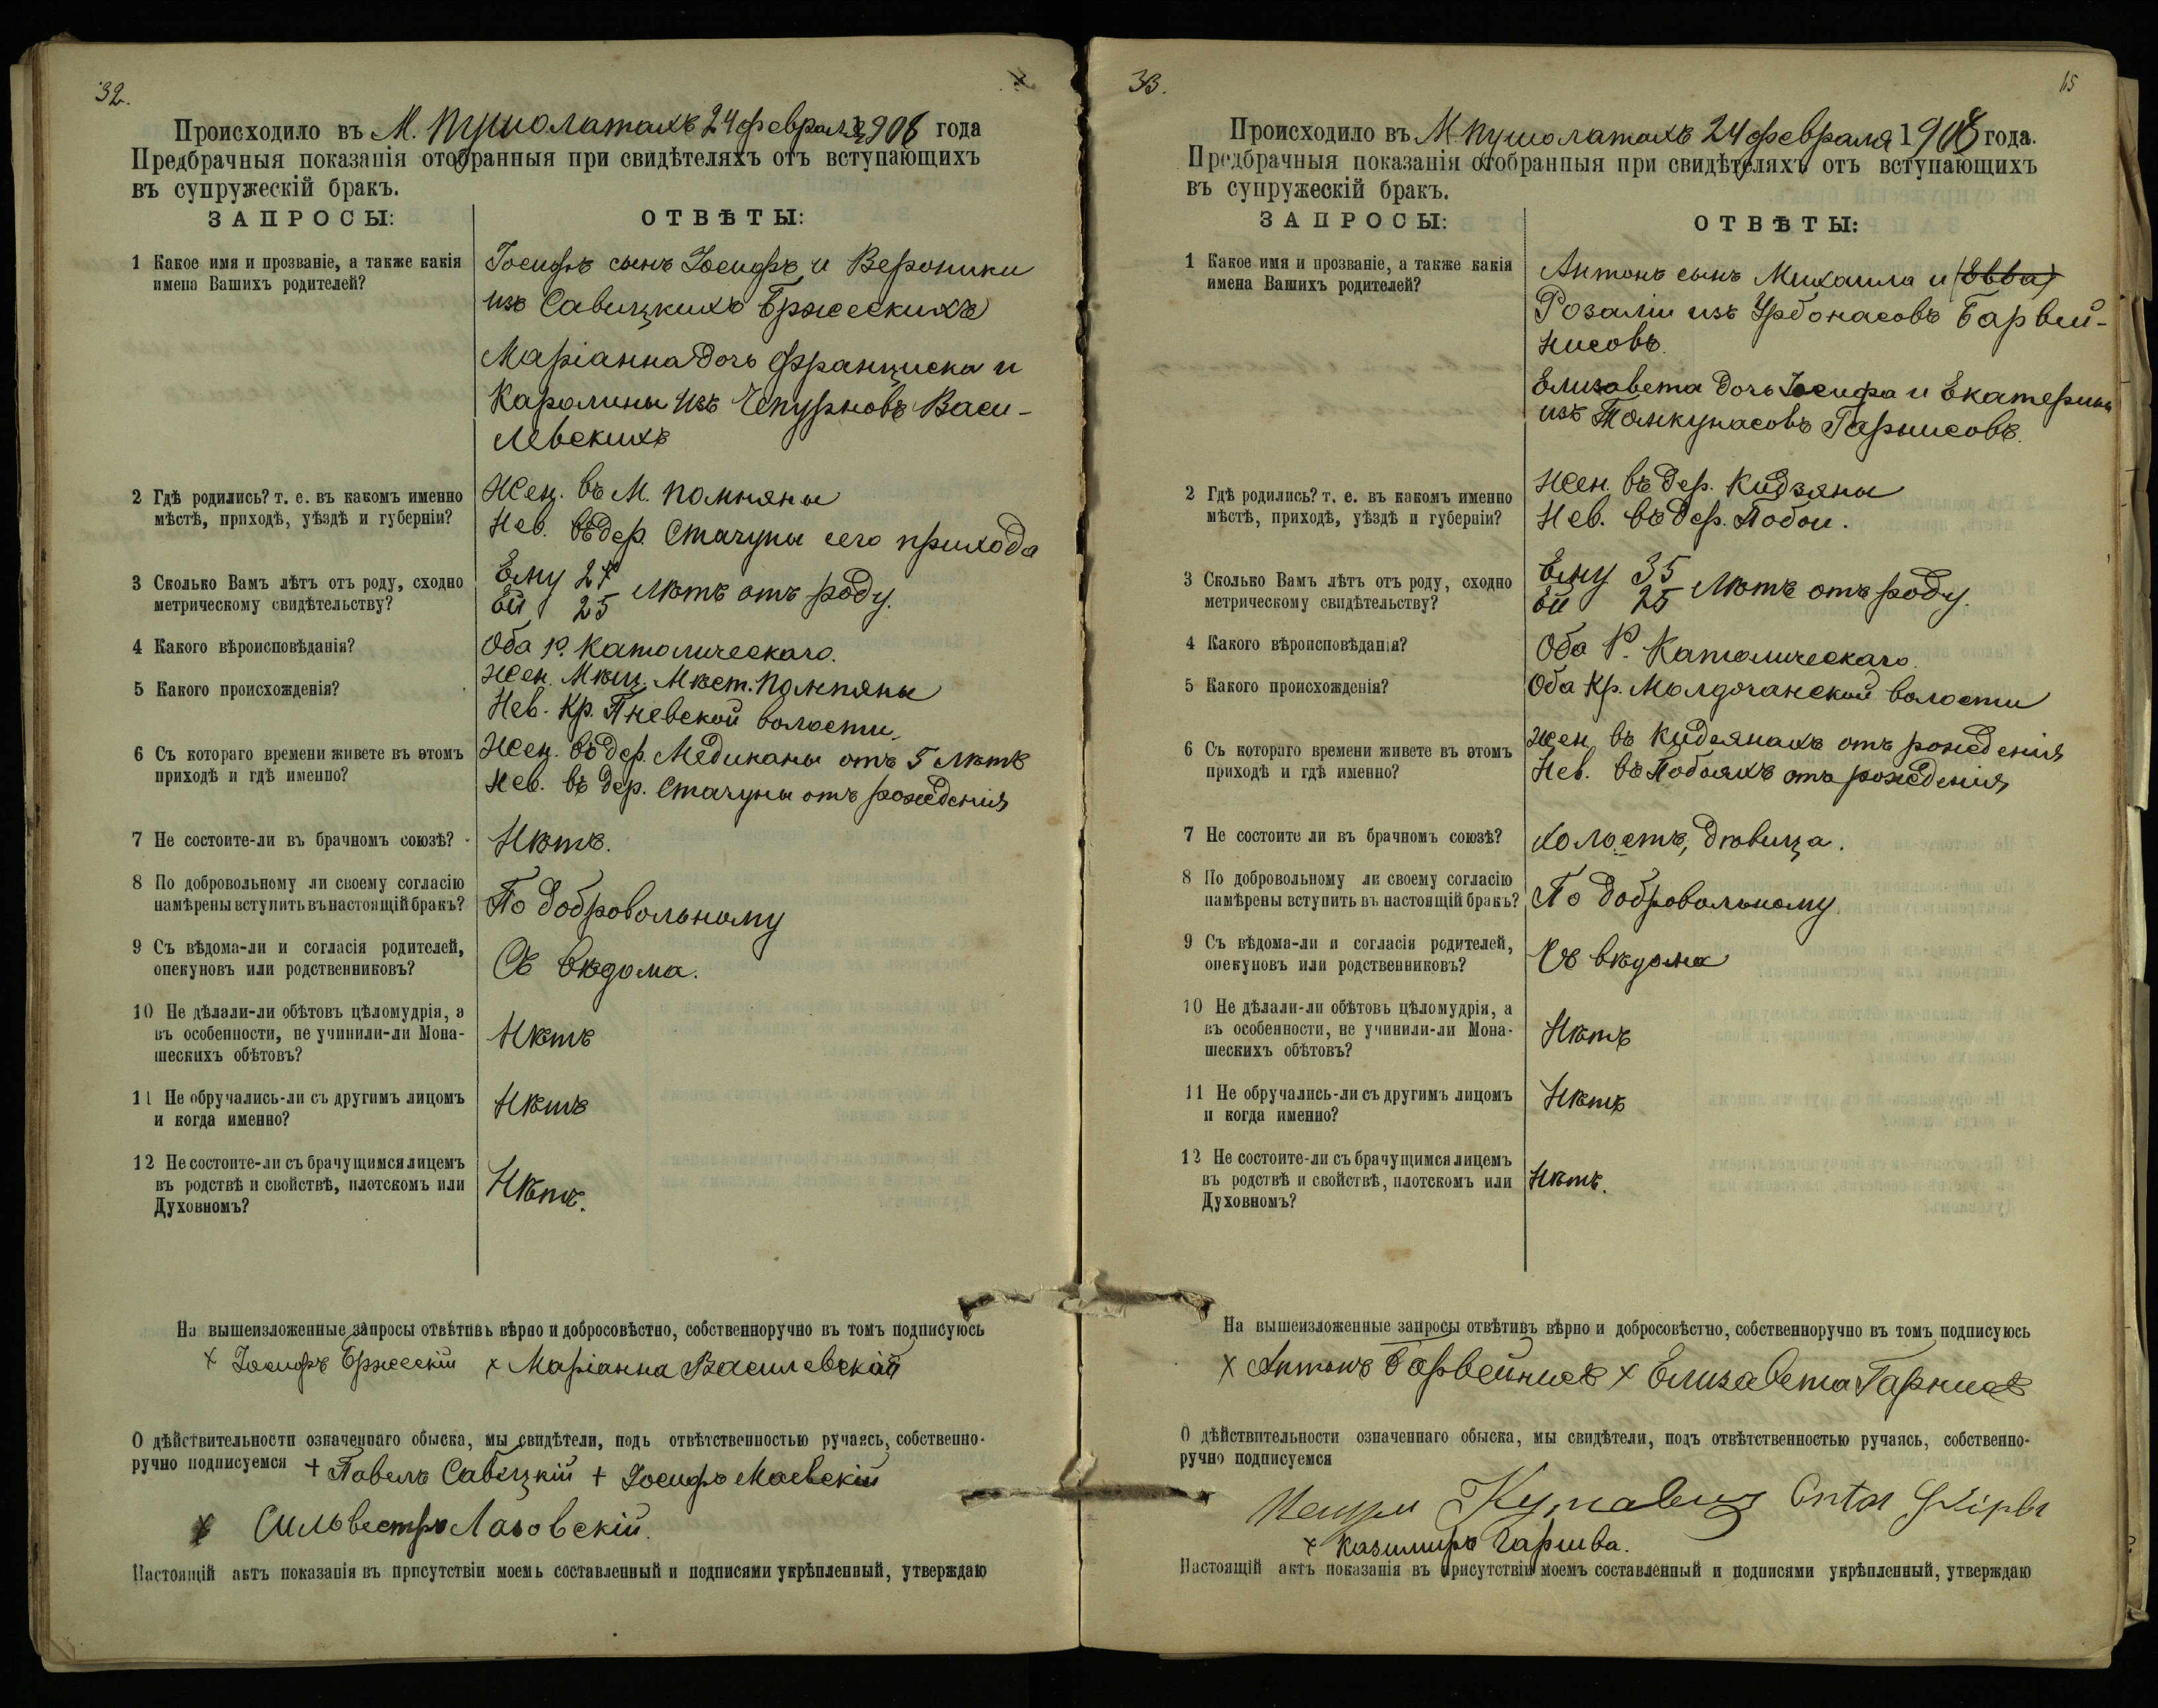 32.
Происходило въ М. Пушолатахъ 24 февраля 1908 года
Предбрачныя показанія отобранныя при свидѣтеляхъ отъ вступающихъ
въ супружескій бракъ.
ЗАПРОСЫ:
ОТВѢТЫ:
1 Какое имя и прозваніе, а также какія
имена Вашихъ родителей?
Іосифъ сынъ Іосифъ и Вероники
изъ Савицкихъ Бржескихъ
Маріанна дочь Франциска и
Каролины изъ Чепурновъ Васи-
левскихъ
2 Гдѣ родились? т. е. въ какомъ именно
мѣстѣ, приходѣ, уѣздѣ и губерніи?
Жен. въ М. Помпяны
Нев. въ дер. Стачуны сего прихода
3 Сколько Вамъ лѣтъ отъ роду, сходно
метрическому свидѣтельству?
Ему 27
Ей 25 лѣтъ отъ роду.
4 Какого вѣроисповѣданія?
Оба Р. Католическаго.
5 Какого происхожденія?
Жен. Мѣщ. Мѣст. Помпяны
Нев. Кр. Пневской волости.
6 Съ котораго времени живете въ этомъ
приходѣ и гдѣ именно?
Жен. въ дер. Медиканы отъ 5 лѣтъ
Нев. въ дер. Стачуны отъ рожденія
7 Не состоите-ли въ брачномъ союзѣ?
Нѣтъ.
8 По добровольному ли своему согласію
намѣрены вступить въ настоящій бракъ?
По добровольному
9 Съ вѣдома-ли и согласія родителей,
опекуновъ или родственниковъ?
Съ вѣдома.
10 Не дѣлали-ли обѣтовъ цѣломудрія, а
въ особенности, не учинили-ли Мона-
шескихъ обѣтовъ?
Нѣтъ
11 Не обручались-ли съ другимъ лицомъ
и когда именно?
Нѣтъ
12 Не состоите-ли съ брачущимся лицемъ
въ родствѣ и свойствѣ, плотскомъ или
Духовномъ?
Нѣтъ.
На вышеизложенные запросы отвѣтивъ вѣрно и добросовѣстно, собственноручно въ томъ подписуюсь
х Іосифъ Бржескій х Маріанна Василевскай
О дѣйствительности означеннаго обыска, мы свидѣтели, подь отвѣтственностью ручаясь, собственно-
ручно подписуемся + Павелъ Савицкій + Іосифъ Маевскій
х Сильвестръ Лазовскій.
Настоящій актъ показанія въ присутствіи моемь составленный и подписями укрѣпленный, утверждаю
33.
15
Происходило въ М. Пушолатахъ 24 февраля 1908 года.
Предбрачныя показанія отобранныя при свидѣтеляхъ отъ вступающихъ
въ супружескій бракъ.
ЗАПРОСЫ:
ОТВѢТЫ:
1 Какое имя и прозваніе, а также какія
имена Вашихъ родителей?
Антонъ сынъ Михаила и (Евва)
Розаліи изъ Урбонасовъ Барвей-
нисовъ.
Елизавета дочь Іосифа и Екатерины
изъ Тамкунасовъ Гарнисовъ.
2 Гдѣ родились? т. е. въ какомъ именно
мѣстѣ, приходѣ, уѣздѣ и губерніи?
Жен. въ дер. Кидзяны
Нев. въ дер. Побои.
3 Сколько Вамъ лѣтъ отъ роду, сходно
метрическому свидѣтельству?
Ему 35
Ей 25 лѣтъ отъ роду.
4 Какого вѣроисповѣданія?
Оба Р. Католическаго.
5 Какого происхожденія?
Оба Кр. Молдочанской волости
6 Съ котораго времени живете въ этомъ
приходѣ и гдѣ именно?
Жен. въ Кидзянахъ отъ рожденія
Нев. въ Побояхъ отъ рожденія
7 Не состоите ли въ брачномъ союзѣ?
холостъ, дѣвица.
8 По добровольному ли своему согласію
намѣрены вступить въ настоящій бракъ?
По добровольному
9 Съ вѣдома-ли и согласія родителей,
опекуновъ или родственниковъ?
Съ вѣдома
10 Не дѣлали-ли обѣтовъ цѣломудрія, а
въ особенности, не учинили-ли Мона-
шескихъ обѣтовъ?
Нѣтъ
11 Не обручались-ли съ другимъ лицомъ
и когда именно?
Нѣтъ
12 Не состоите-ли съ брачущимся лицемъ
въ родствѣ и свойствѣ, плотскомъ или
Духовномъ?
Нѣтъ.
На вышеизложенные запросы отвѣтивъ вѣрно и добросовѣстно, собственноручно въ томъ подписуюсь
х Антонъ Барвейнисъ х Елизавета Гарнисъ
О дѣйствительности означеннаго обыска, мы свидѣтели, подъ отвѣтственностью ручаясь, собственно-
ручно подписуемся
х Казимиръ Гаршва.
Настоящій актъ показанія въ присутствіи моемъ составленный и подписями укрѣпленный, утверждаю